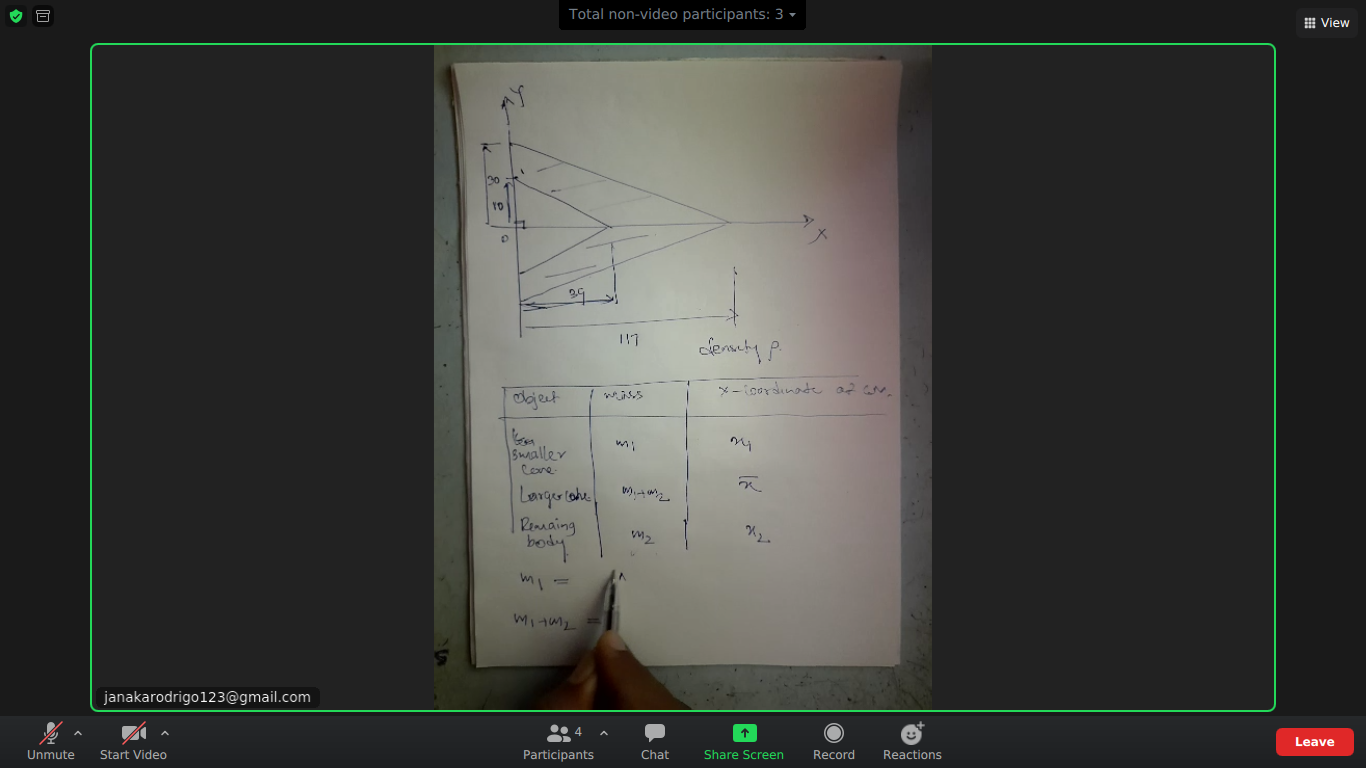 Total non-video participants: 3
View
Y
30
10
0
X
39
117
density ρ.
object mass x-coordinate of CM.
smaller cone m₁ x₁
Larger cone m₁+m₂ x̅
Remaing body m₂ x₂
m₁ =
m₁+m₂ =
janakarodrigo123@gmail.com
Unmute Start Video Participants 4 Chat Share Screen Record Reactions Leave